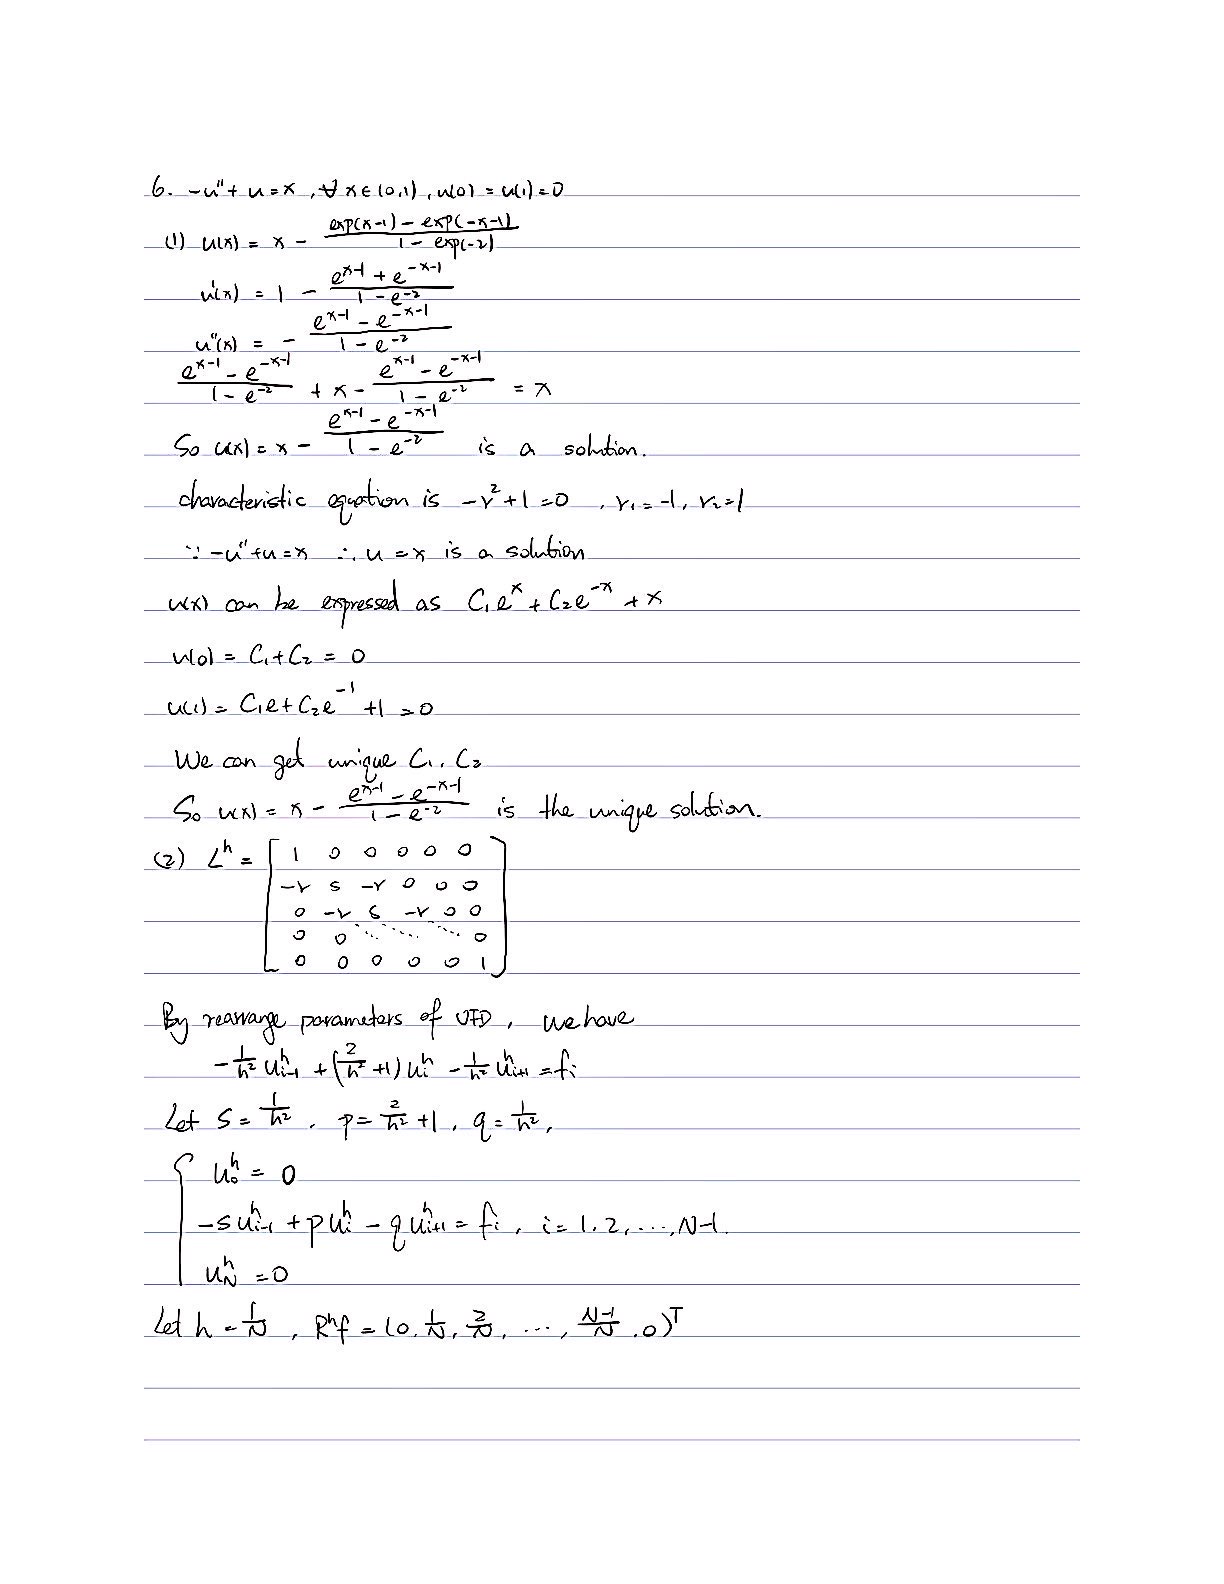 6. -u''+ u = x , ∀ x ∈ (0,1) , u(0) = u(1) = 0
(1) u(x) = x - \frac{exp(x-1) - exp(-x-1)}{1 - exp(-2)}
u'(x) = 1 - \frac{e^{x-1} + e^{-x-1}}{1 - e^{-2}}
u''(x) = - \frac{e^{x-1} - e^{-x-1}}{1 - e^{-2}}
\frac{e^{x-1} - e^{-x-1}}{1 - e^{-2}} + x - \frac{e^{x-1} - e^{-x-1}}{1 - e^{-2}} = x
So u(x) = x - \frac{e^{x-1} - e^{-x-1}}{1 - e^{-2}} is a solution.
characteristic equation is -r^2+1=0 , r_1=-1, r_2=1
∵ -u''+u=x ∴ u=x is a solution
u(x) can be expressed as C_1e^x + C_2e^{-x} + x
u(0) = C_1+C_2 = 0
u(1) = C_1e+C_2e^{-1} +1 = 0
We can get unique C_1, C_2
So u(x) = x - \frac{e^{x-1} - e^{-x-1}}{1 - e^{-2}} is the unique solution.
(2) L^h = [ 1 0 0 0 0 0 ]
-r s -r 0 0 0
0 -r s -r 0 0
0 0 ⋱ ⋱ ⋱ 0
0 0 0 0 0 1
By rearrange parameters of UFD, we have
-\frac{1}{h^2} u_{i-1}^h + (\frac{2}{h^2} +1) u_i^h - \frac{1}{h^2} u_{i+1}^h = f_i
Let S = \frac{1}{h^2} , p = \frac{2}{h^2} +1 , q = \frac{1}{h^2} ,
{ u_0^h = 0
-s u_{i-1}^h + p u_i^h - q u_{i+1}^h = f_i , i = 1, 2, ..., N-1.
u_N^h = 0
Let h = \frac{1}{N} , R^hf = (0, \frac{1}{N}, \frac{2}{N}, ..., \frac{N-1}{N}, 0)^T